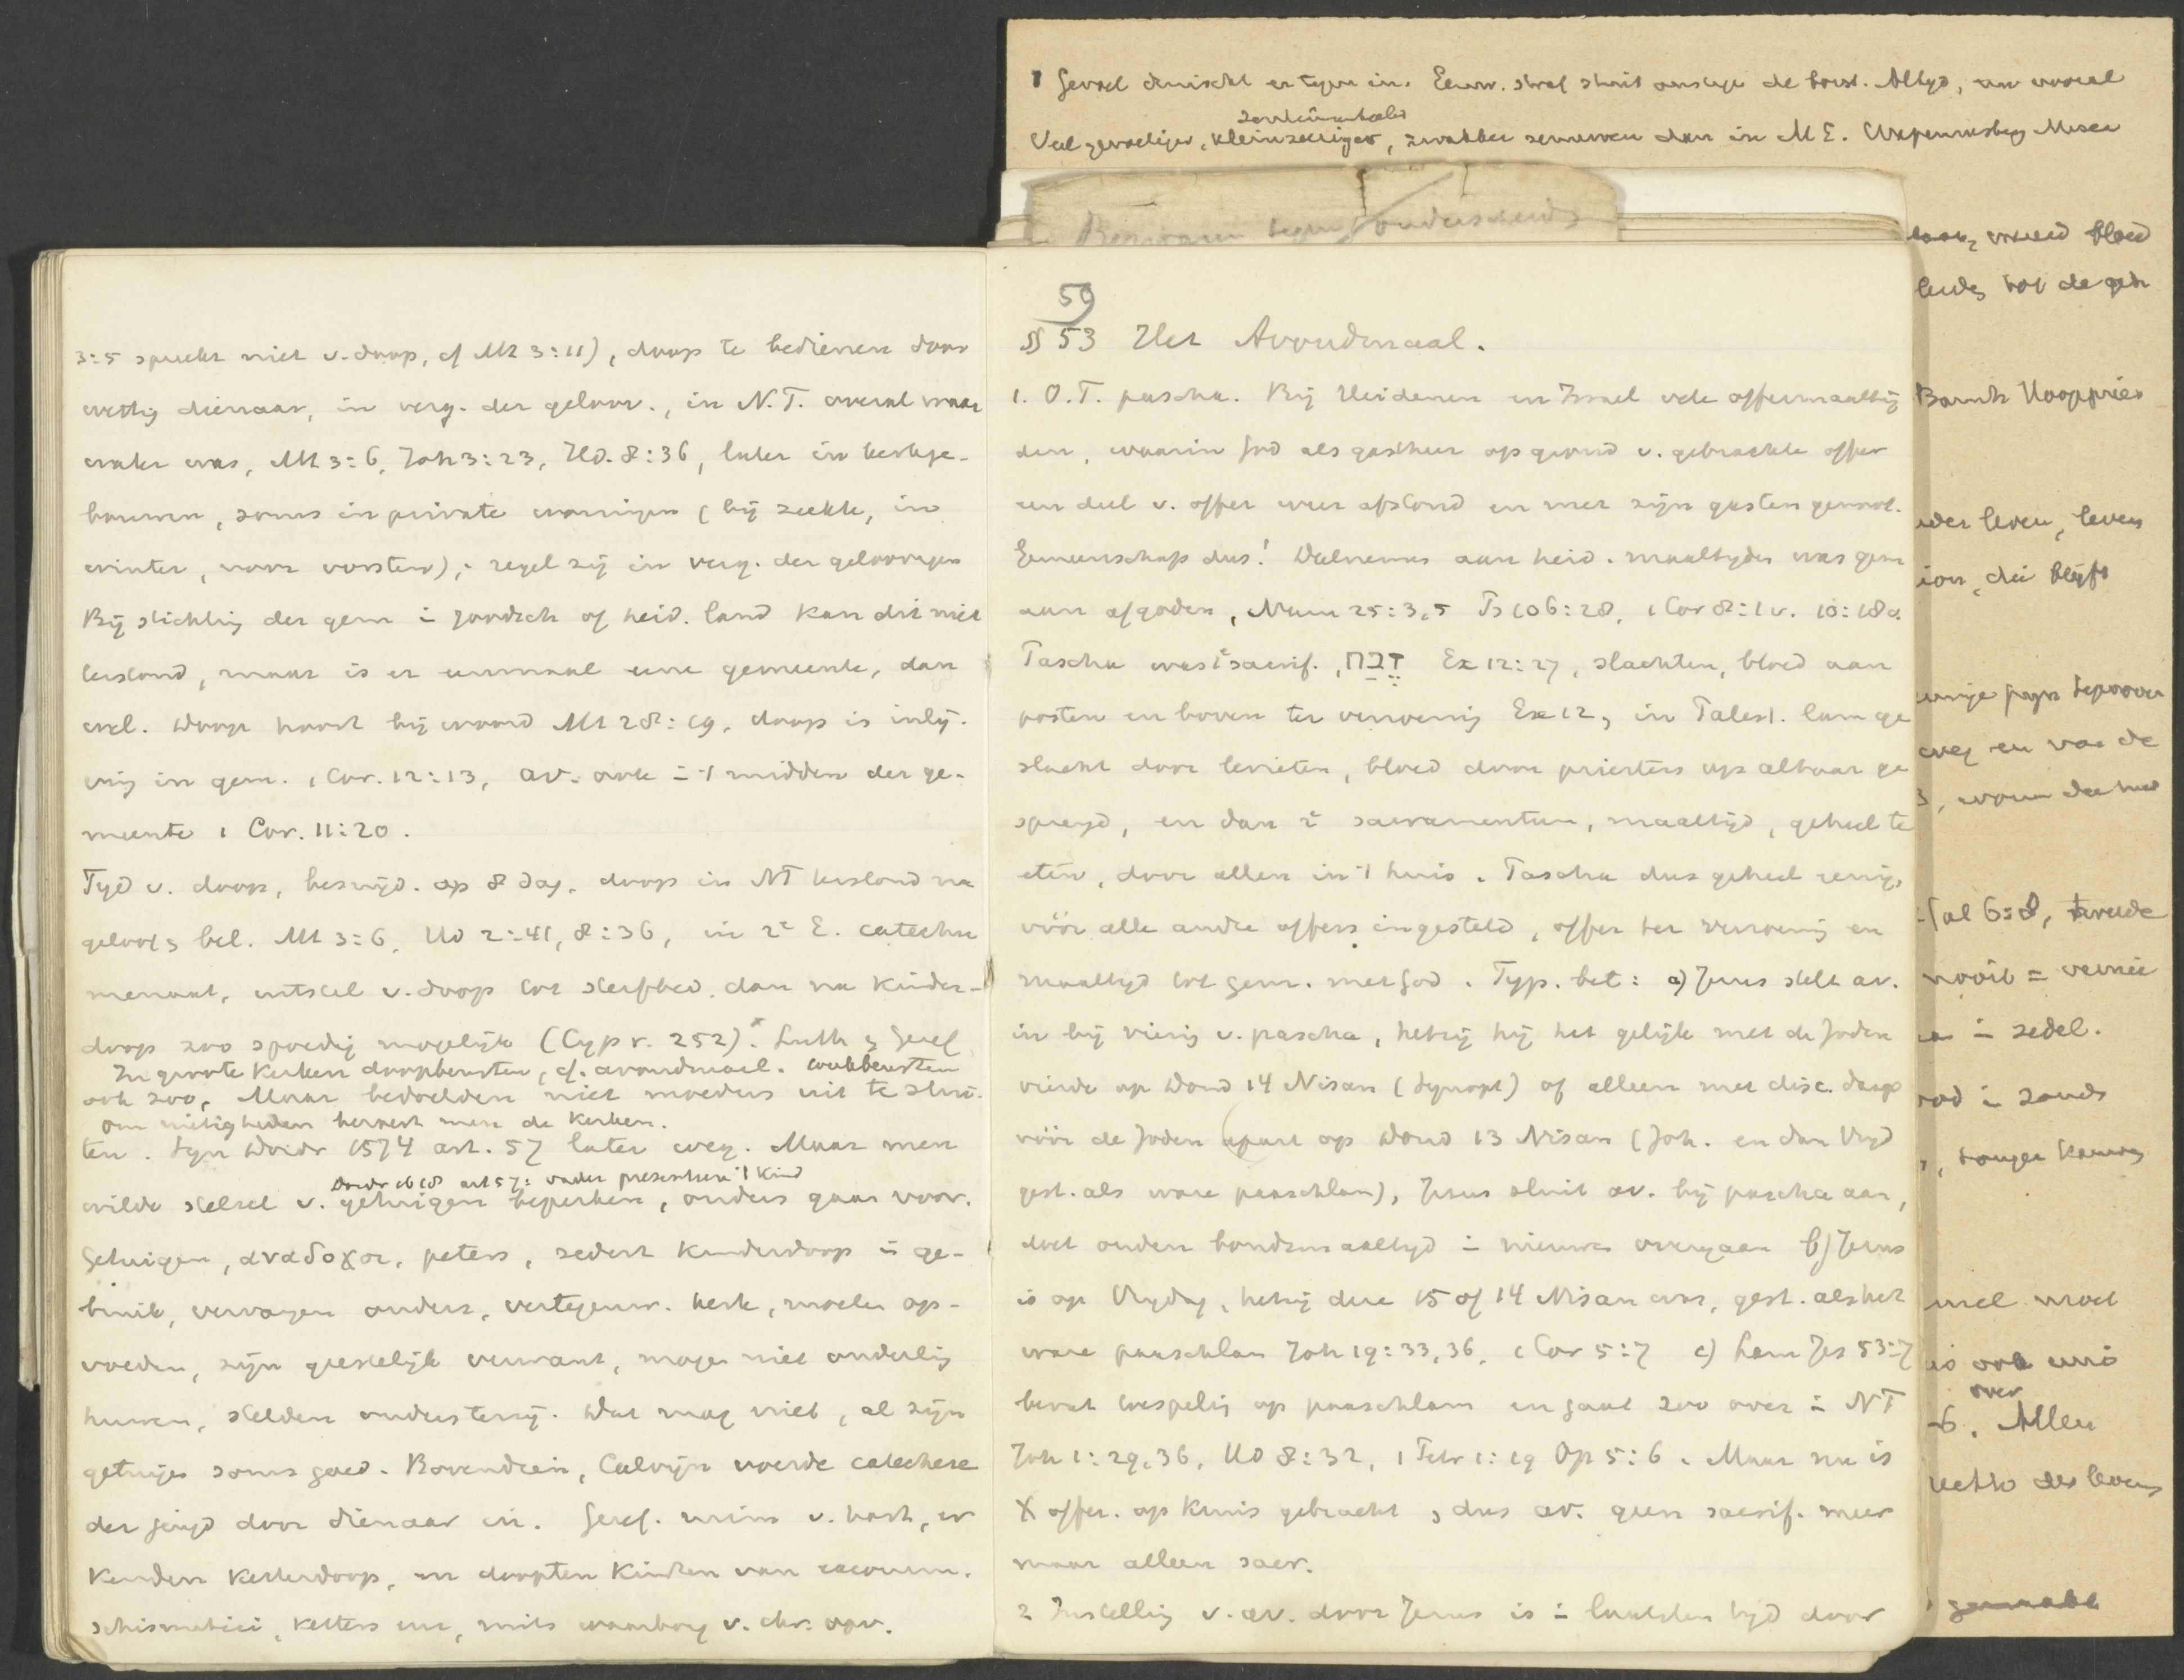 3:5 spreekt niet v. doop, cf Mt 3:11), doop te bedienen door
wettig dienaar, in verg. der geloov., in N.T. overal waar
water was, Mt 3:6, Joh 3:23, Hd. 8:36, later in kerkge-
bouwen, soms in private woningen (bij ziekte, in
winter, voor vorsten), regel zij in verg. der geloovigen
Bij stichting der gem in joodsch of heid. land kan dit niet
bestond, maar is er eenmaal eene gemeente, dan
wel. Doop hoort bij woord Mt 28:19, doop is inlij-
ving in gem. 1 Cor. 12:13, av. ook in 't midden der ge-
meente 1 Cor. 11:20.
Tijd v. doop, besnijd. op 8 dag, doop in NT bestond na
geloof & bel. Mt 3:6, Hd 2:41, 8:36, in 2e E. catechu
menaat, uitstel v. doop tot sterfbed, dan na kinder-
doop zoo spoedig mogelijk (Cypr. 252).x Luth & Geref
In groote kerken doopbeurten, cf. avondmaal. weekbeurten
ook zoo, Maar bedoelden niet moeders uit te slui-
om nietigheden herleest men de kerken.
ten. Syn Dordr 1574 art. 57 later weg. Maar men
Dordr 1618 art 57: vader presenteere 't kind
wilde stelsel v. getuigen beperken, ouders gaan voor.
Getuigen, αναδοχοι, peters, sedert kinderdoop in ge-
bruik, vervangen ouders, vertegenw. kerk, moeten op-
voeden, zijn geestelijk verwant, mogen niet onderling
huwen, stelden ouders terzij. Dat mag niet, al zijn
getuigen soms goed. Bovendien, Calvijn voerde catechese
der jeugd door dienaar in. Geref. namen v. hart, er
kenden ketterdoop, en doopten kinderen van excomm.
schismatici, ketters enz, mits waarborg v. chr. opv.
1 Gevoel druischt er tegen in. Eeuw. straf stuit ons tegen de borst. Altijd, nu vooral
sentimenteeler
Veel gevoeliger, kleinzeeriger, zwakker zenuwen dan in M E.
onderscheid
59
§ 53 Het Avondmaal.
1. O.T. pascha. Bij Heidenen en Israel vele offermaaltij
den, waarin God als gastheer op grond v. gebrachte offer
een deel v. offer weer afstond en met zijn gasten genoot.
Gemeenschap dus! Deelnemen aan heid. maaltijden was gem
aan afgoden, Num 25:3,5 Ps 106:28, 1 Cor 8:1v. 10:18v.
Pascha was 1e sacrif., זבח Ex 12:27, slachten, bloed aan
posten en boven ter verzoening Ex 12, in Palest. lam ge
slacht door levieten, bloed door priesters op altaar ge
sprengd, en dan 2e sacramentum, maaltijd, geheel te
eten, door allen in 't huis. Pascha dus geheel eenig,
vóór alle andre offers ingesteld, offer ter verzoening en
maaltijd tot gem. met God. Typ. bet: a) Jezus stelt av.
in bij viering v. pascha, hetzij hij het gelijk met de Joden
vierde op Dond 14 Nisan (Synopt) of alleen met disc. daags
vóór de Joden apart op Dond 13 Nisan (Joh. en dan Vrijd
gest. als ware paaschlam), Jezus sluit av. bij pascha aan,
doet ouden bondsmaaltijd in nieuwen overgaan b) Jezus
is op Vrijdag, hetzij deze 15 of 14 Nisan was, gest. als het
ware paaschlam Joh 19:33,36, 1 Cor 5:7 c) Lam Jes 53:7
bevat toespeling op paaschlam en gaat zoo over in NT
Joh 1:29,36, Hd 8:32, 1 Petr 1:19 Op 5:6. Maar nu is
X offer. op kruis gebracht, dus av. geen sacrif. meer
maar alleen sacr.
2 Instelling v. av. door Jezus is in laatsten tijd door
bloed
tot de
leven, leven
die blijft
weg en van de
Gal 6:8,
nooit =
in zedel.
is ook eens
over
Allen
des levens